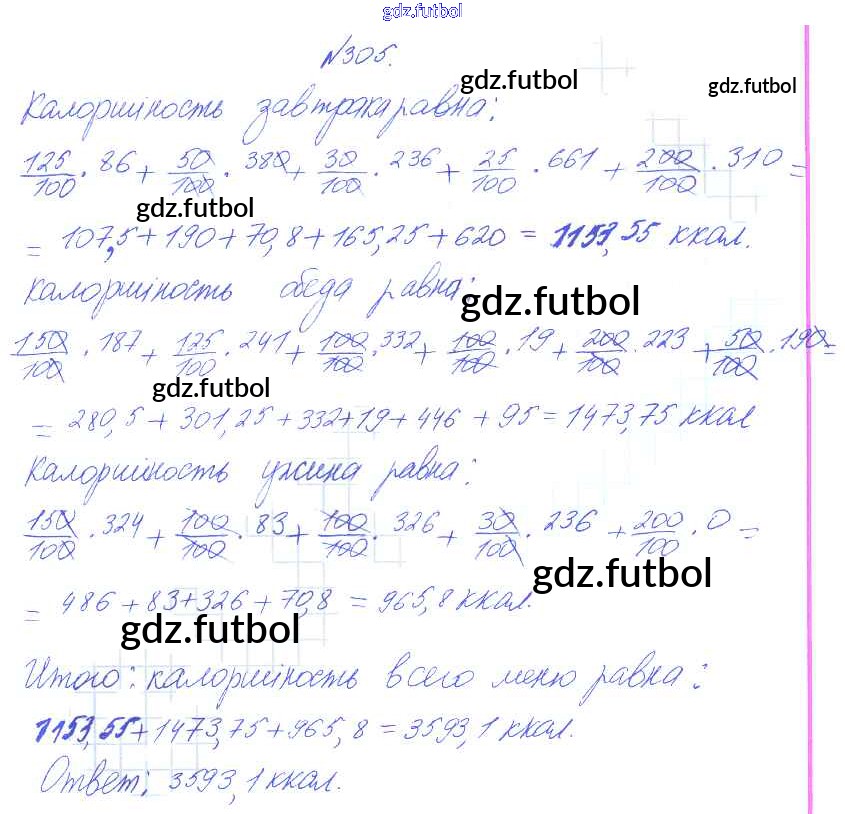 gdz.futbol
№305.
gdz.futbol gdz.futbol
Калорийность завтрака равна:
125/100 · 86 + 50/100 · 380 + 30/100 · 236 + 25/100 · 661 + 200/100 · 310 =
gdz.futbol
= 107,5 + 190 + 70,8 + 165,25 + 620 = 1153,55 ккал.
Калорийность обеда равна:
gdz.futbol
150/100 · 187 + 125/100 · 241 + 100/100 · 332 + 100/100 · 19 + 200/100 · 223 + 50/100 · 190 =
gdz.futbol
= 280,5 + 301,25 + 332 + 19 + 446 + 95 = 1473,75 ккал
Калорийность ужина равна:
150/100 · 324 + 100/100 · 83 + 100/100 · 326 + 30/100 · 236 + 200/100 · 0 =
gdz.futbol
= 486 + 83 + 326 + 70,8 = 965,8 ккал.
gdz.futbol
Итого: калорийность всего меню равна:
1153,55 + 1473,75 + 965,8 = 3593,1 ккал.
Ответ: 3593,1 ккал.